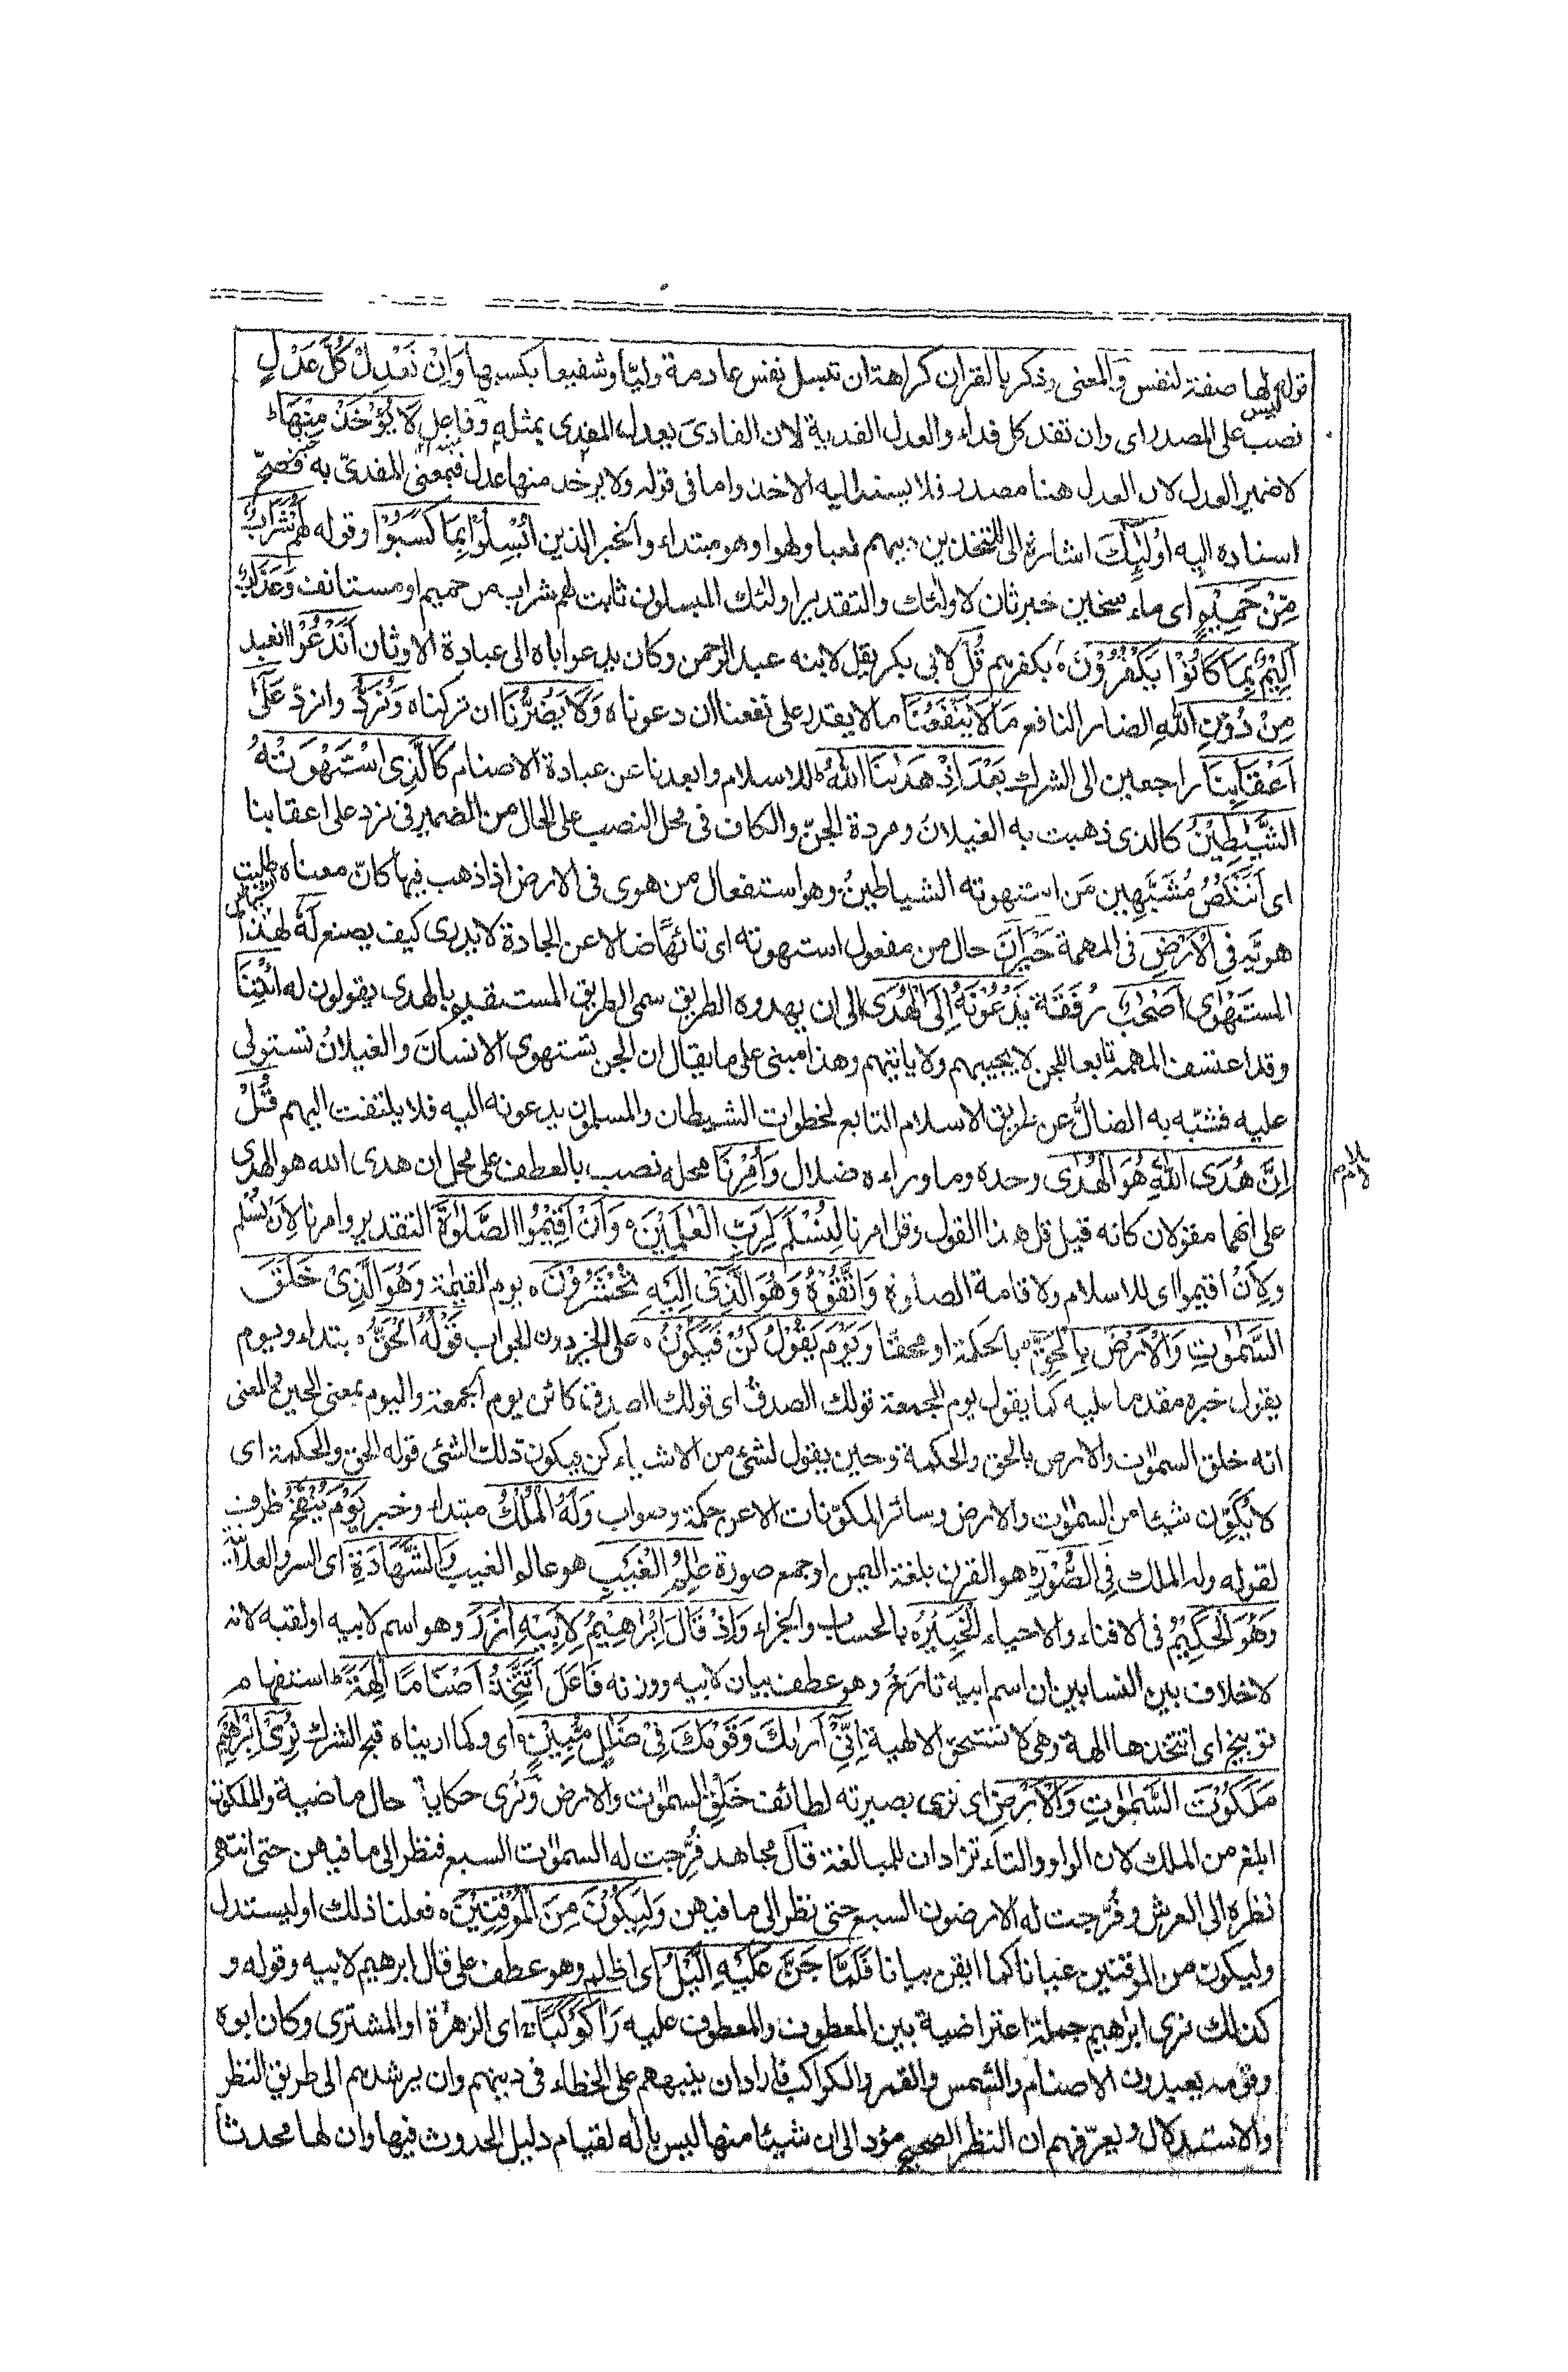 قوله ليس لها صفة لنفس والمعنى وذكر بالقران كراهة ان تبسل نفس عادمة وليّا وشفيعا بكسبها وَاِنْ تَعْدِلْ كُلَّ عَدْلٍ
نصب على المصدر اى وان تفد كل فداء والعدل الفدية لان الفادىَ يعدل المفدى بمثله وفاعل لَا يُؤْخَذْ مِنْهَاؕ
لا ضمير العدل لان العدل هنا مصدر فلا يسند اليه الاخذ واما فى قوله ولا يوخذ منها عدل فبمعنى المفدىّ به فصحّ
اسناده اليه اُولٰٓئِكَ اشارة الى المتخذين دينهم لعبا ولهوا وهو مبتداء والخبر الذين اُبْسِلُوْا بِمَا كَسَبُوْا وقوله لَهُمْ شَرَابٌ
مِّنْ حَمِيْمٍ اى ماء سخين خبر ثان لاولٰئك والتقدير اولٰئك المبسلون ثابت لهم شراب من حميم او مستانف وَعَذَابٌ
اَلِيْمٌۢ بِمَا كَانُوْا يَكْفُرُوْنَ۠ بكفرهم قُلْ لابى بكر يقل لابنه عبد الرحمن وكان يدعو اباه الى عبادة الاوثان اَنَدْعُوْا انعبد
مِنْ دُوْنِ اللهِ الضار النافع مَا لَا يَنْفَعُنَا ما لا يقدر على نفعنا ان دعوناه وَلَا يَضُرُّنَا ان تركناه وَنُرَدُّ وانردّ عَلٰٓى
اَعْقَابِنَا راجعين الى الشرك بَعْدَ اِذْ هَدٰىنَا اللهُ للاسلام وابعدنا عن عبادة الاصنام كَالَّذِى اسْتَهْوَتْهُ
الشَّيٰطِيْنُ كالذى ذهبت به الغيلان ومردة الجنّ والكاف فى محل النصب على الحال من الضمير فى نرد على اعقابنا
اى اَنَنْكُصُ مُشَبَّهين مَن استهوته الشياطينُ وهو استفعال من هوى فى الارض اذا ذهب فيها كانّ معناه طلبت
هوِيَّه فِى الْاَرْضِ فى المهمة حَيْرَانَ حال من مفعول استهوته اى تائهًا ضالا عن الجادة لا يدرى كيف يصنع لَهٗٓ لهذا
المستهوٰى اَصْحٰبٌ رُفقة يَدْعُوْنَهٗٓ اِلَى الْهُدَى الى ان يهدوه الطريق سمى الطريق المستقيم بالهدى يقولون له ائْتِنَا
وقد اعتسف المهمة تابعا للجن لا يجيبهم ولا ياتيهم وهذا مبنى على ما يقال ان الجن تستهوى الانسان والغيلانُ تستولى
عليه فشبّه به الضالُّ عن طريق الاسلام التابع لخطوات الشيطان والمسلمون يدعونه اليه فلا يلتفت اليهم قُلْ
اِنَّ هُدَى اللهِ هُوَ الْهُدٰى وحده وما وراءه ضلال وَاُمِرْنَا محله نصب بالعطف على محل ان هدى الله هو الهدى
على انهما مقولان كانه قيل قل هذا القول وقل امرنا لِنُسْلِمَ لِرَبِّ الْعٰلَمِيْنَ وَاَنْ اَقِيْمُوا الصَّلٰوةَ التقدير وامرنا لِاَنْ نُسْلِمَ
ولِاَنْ اقيموا اى للاسلام ولاقامة الصلوة وَاتَّقُوْهُ وَهُوَ الَّذِىْٓ اِلَيْهِ تُحْشَرُوْنَ يوم القيٰمة وَهُوَ الَّذِىْ خَلَقَ
السَّمٰوٰتِ وَالْاَرْضَ بِالْحَقِّ بالحكمة او محقّا وَيَوْمَ يَقُوْلُ كُنْ فَيَكُوْنُ على الخبر دون الجواب قَوْلُهُ الْحَقُّ مبتداء ويوم
يقول خبره مقدما عليه كما يقول يوم الجمعة قولك الصدقُ اى قولك الصدق كائن يوم الجمعة واليوم بمعنى الحين والمعنى
انه خلق السمٰوٰت والارض بالحق والحكمة وحين يقول لشئ من الاشياء كن فيكون ذلك الشئ قوله الحق والحكمة اى
لا يُكَوِّن شيئا من السمٰوٰت والارض وسائر المكوّنات الا عن حكمة وصواب وَلَهُ الْمُلْكُ مبتداء وخبر يَوْمَ يُنْفَخُ ظرف
لقوله وله الملك فِى الصُّوْرِ هو القرن بلغة اليمن او جمع صورة عٰلِمُ الْغَيْبِ هو عالم الغيب وَالشَّهَادَةِ اى السر والعلانية
وَهُوَ الْحَكِيْمُ فى الافناء والاحياء الْخَبِيْرُ بالحساب والجزاء وَاِذْ قَالَ اِبْرٰهِيْمُ لِاَبِيْهِ اٰزَرَ وهو اسم لابيه او لقبه لانه
لا خلاف بين النسابين ان اسم ابيه تارَخُ وهو عطف بيان لابيه ووزنه فَاعَل اَتَتَّخِذُ اَصْنَامًا اٰلِهَةً استفهام
توبيخ اى اتتخذها الهة وهى لا تستحق الالهية اِنِّىْٓ اَرٰىكَ وَقَوْمَكَ فِىْ ضَلٰلٍ مُّبِيْنٍ اى وكما اريناه قبح الشرك نُرِىْٓ اِبْرٰهِيْمَ
مَلَكُوْتَ السَّمٰوٰتِ وَالْاَرْضِ اى نرى بصيرته لطائف خَلْقِ السمٰوٰت والارض ونُرى حكاية حال ماضية والملكوت
ابلغ من الملك لان الواو والتاء تزادان للمبالغة قال مجاهد فُرِّجت له السمٰوٰت السبع فنظر الى ما فيهن حتى انتهى
نظره الى العرش وفُرّجت له الارضون السبع حتى نظر الى ما فيهن وَلِيَكُوْنَ مِنَ الْمُوْقِنِيْنَ فعلنا ذلك او ليستدل
وليكون من الموقنين عيانا كما ايقن بيانا فَلَمَّا جَنَّ عَلَيْهِ الَّيْلُ اى اظلم وهو عطف على قال ابرهيم لابيه وقوله و
كذلك نرى ابرهيم جملة اعتراضية بين المعطوف والمعطوف عليه رَاٰ كَوْكَبًا اى الزهرة او المشترى وكان ابوه
وقومه يعبدون الاصنام والشمس والقمر والكواكب فاراد ان ينبههم على الخطاء فى دينهم وان يرشدهم الى طريق النظر
والاستدلال ويعرّفهم ان النظر الصحيح مؤد الى ان شيئا منها ليس باله لقيام دليل الحدوث فيها وان لها محدثا